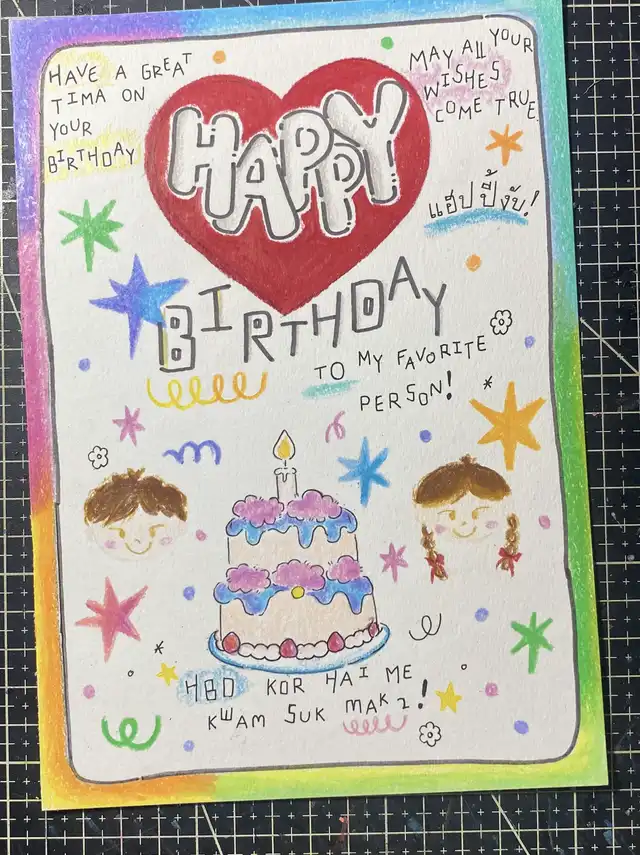 HAVE A GREAT
TIMA ON
YOUR
BIRTHDAY
MAY ALL YOUR
WISHES
COME TRUE.
HAPPY
แฮปปี้งับ!
BIRTHDAY
TO MY FAVORITE
PERSON!
HBD KOR HAI ME
KWAM SUK MAK2!